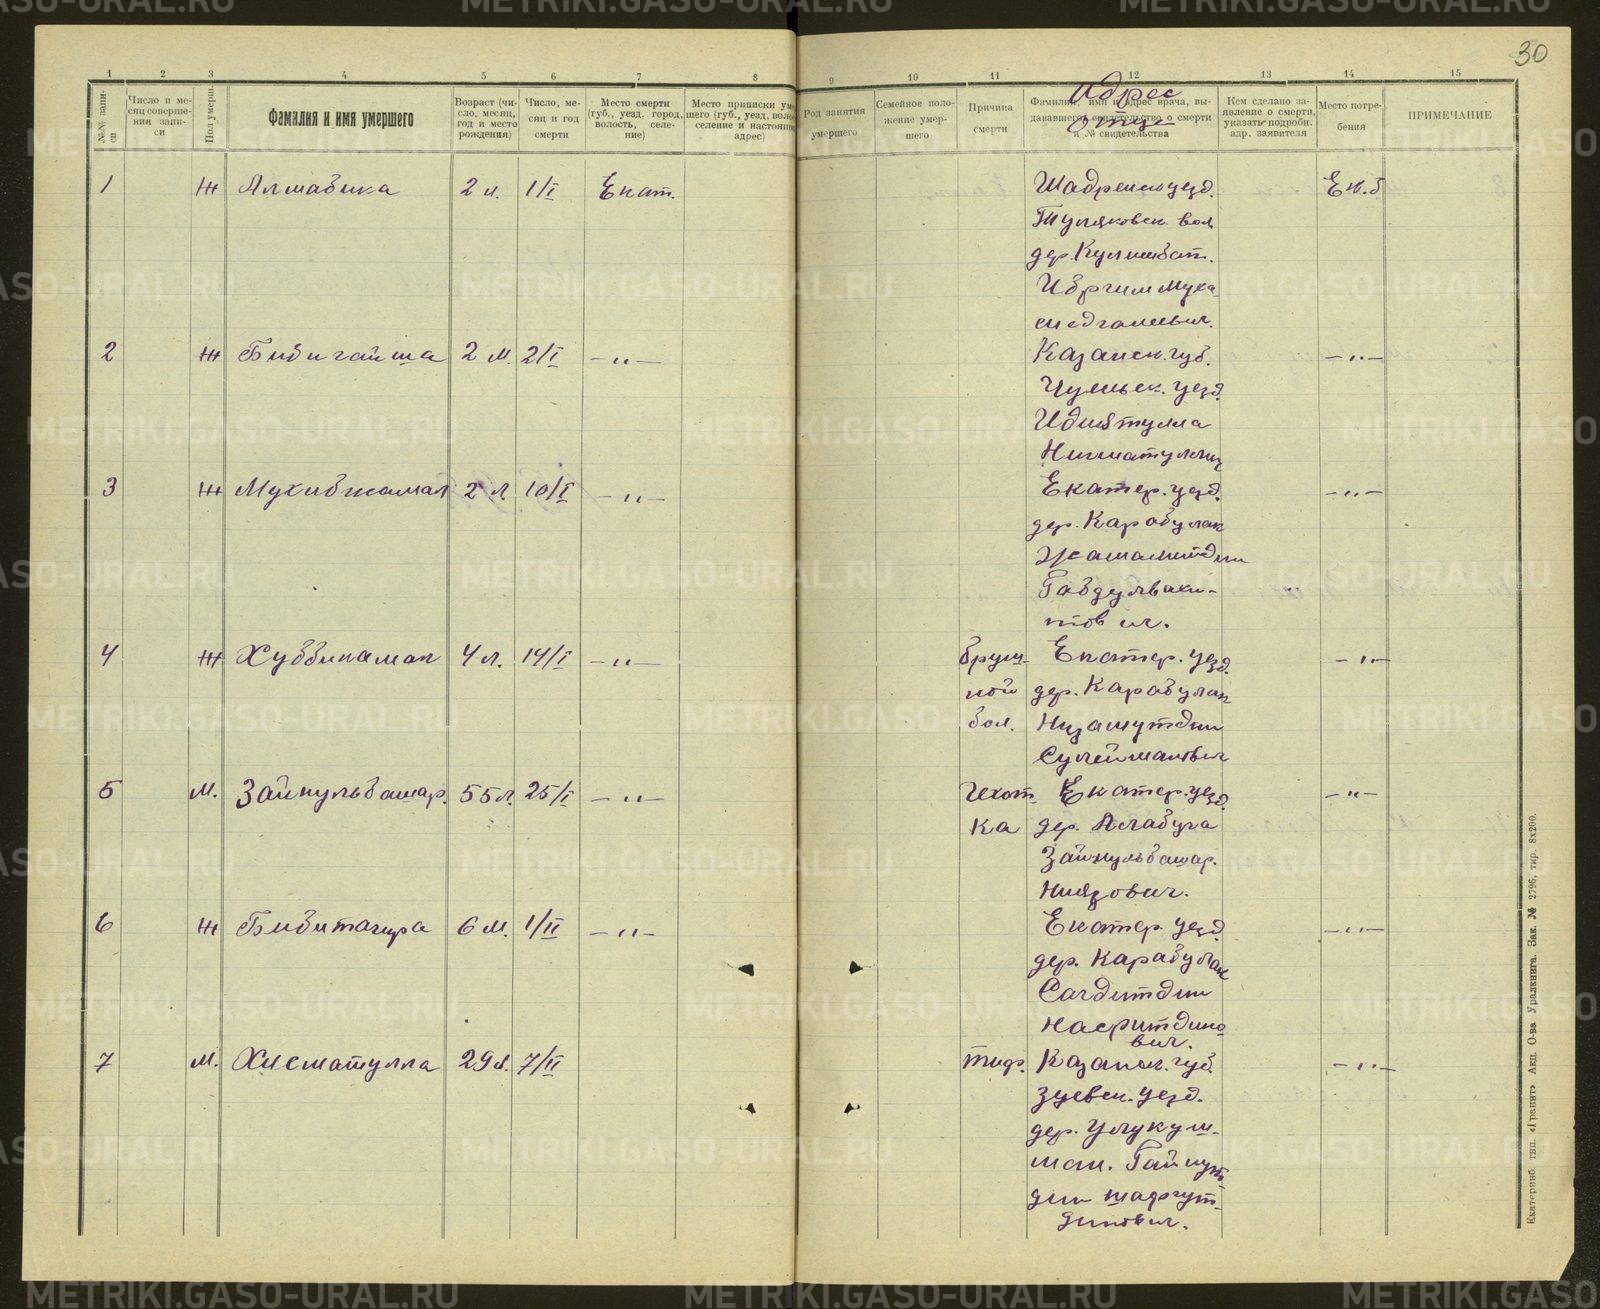 30
1 2 3 4 5 6 7 8 9 10 11 12 13 14 15
№№ записи
Число и месяц совершения записи
Пол умерш.
Фамилия и имя умершего
Возраст (число, месяц, год и место рождения)
Число, месяц и год смерти
Место смерти (губ., уезд. город, волость, селение)
Место приписки умершего (губ., уезд, волость, селение и настоящий адрес)
Род занятия умершего
Семейное положение умершего
Причина смерти
Фамилия, имя и адрес врача, выдававшего свидетельство о смерти и № свидетельства
Адрес
отца
Кем сделано заявление о смерти, указать подробн. адр. заявителя
Место погребения
ПРИМЕЧАНИЕ
1 Ж Алмабика 2 л. 1/I Екат. Шадренск уезд. Ек.б
Туляковск. вол.
дер. Кулышбат.
Ибргим Муха
медгалиевич.
2 Ж Бибигайша 2 м. 2/I —"— Казанск. губ. —"—
Идиятулла
Нигматулич
3 Ж Мухибжамал 2 л. 10/I —"— Екатер. уезд. —"—
дер. Карабулак
Жамалитдин
Габдулваги-
тович.
4 Ж Хуббикамал 4 л. 14/I —"— брюш- Екатер. уезд. —"—
ной дер. Карабулак
бол. Низамутдин
Сулейманович
5 М. Зайнульбашар. 55 л. 25/I —"— Чехот- Екатер. уезд. —"—
ка дер. Алабуга
Зайнульбашар.
Ниязович.
6 Ж Бибитагира 6 м. 1/II —"— Екатер. уезд. —"—
дер. Карабулак
Сагдитдин
Насритдино
вич.
7 М. Хисматулла 29 л. 7/II тиф. Казанск. губ. —"—
Зуевск. уезд.
дер. Улукуш-
ман. Гайнут
дин Шафгут-
динович.
Екатеринб. тип. «Гранит» Акц. О-ва Уралкнига. Зак. № 2796, тир. 8х200.
METRIKI.GASO-URAL.RU